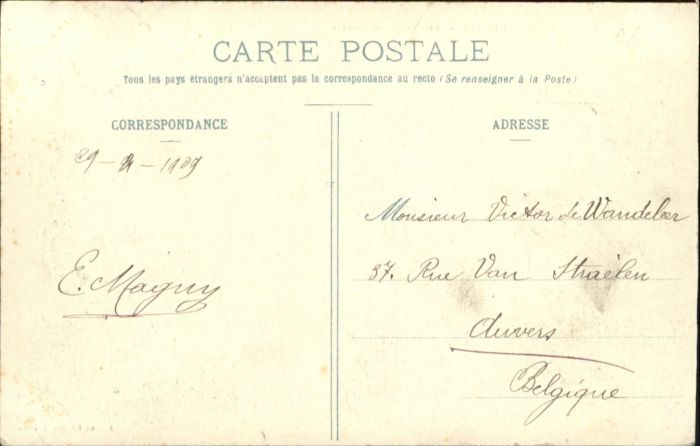 CARTE POSTALE
Tous les pays étrangers n'acceptent pas la correspondance au recto (Se renseigner à la Poste)
CORRESPONDANCE
29 - 4 - 1909
E. Magny
ADRESSE
Monsieur Victor de Wandeler
37. Rue Van Straelen
Anvers
Belgique